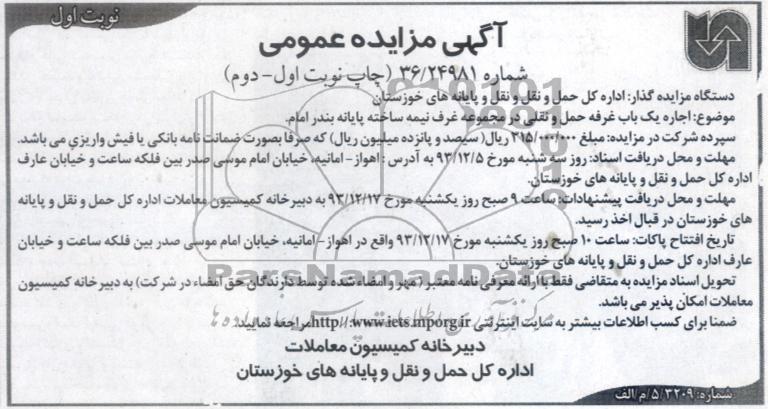 نوبت اول
آگهی مزایده عمومی
شماره ۳۶/۲۴۹۸۱ (چاپ نوبت اول - دوم)
دستگاه مزایده گذار: اداره کل حمل و نقل و نقل و پایانه های خوزستان
موضوع: اجاره یک باب غرفه حمل و نقلی در مجموعه غرف نیمه ساخته پایانه بندر امام.
سپرده شرکت در مزایده: مبلغ ۳۱۵/۰۰۰/۰۰۰ ریال (سیصد و پانزده میلیون ریال) که صرفا بصورت ضمانت نامه بانکی یا فیش واریزی می باشد.
مهلت و محل دریافت اسناد: روز سه شنبه مورخ ۹۳/۱۲/۵ به آدرس: اهواز - امانیه، خیابان امام موسی صدر بین فلکه ساعت و خیابان عارف
اداره کل حمل و نقل و پایانه های خوزستان.
مهلت و محل دریافت پیشنهادات: ساعت ۹ صبح روز یکشنبه مورخ ۹۳/۱۲/۱۷ به دبیرخانه کمیسیون معاملات اداره کل حمل و نقل و پایانه
های خوزستان در قبال اخذ رسید.
تاریخ افتتاح پاکات: ساعت ۱۰ صبح روز یکشنبه مورخ ۹۳/۱۲/۱۷ واقع در اهواز - امانیه، خیابان امام موسی صدر بین فلکه ساعت و خیابان
عارف اداره کل حمل و نقل و پایانه های خوزستان.
ParsNamadData
تحویل اسناد مزایده به متقاضی فقط با ارائه معرفی نامه معتبر (مهر و امضاء شده توسط دارندگان حق امضاء در شرکت) به دبیرخانه کمیسیون
معاملات امکان پذیر می باشد.
ضمنا برای کسب اطلاعات بیشتر به سایت اینترنتی http//:www.iets.mporg.ir مراجعه نمایید.
دبیرخانه کمیسیون معاملات
اداره کل حمل و نقل و پایانه های خوزستان
شماره: ۵/۳۲۰۹/م/الف